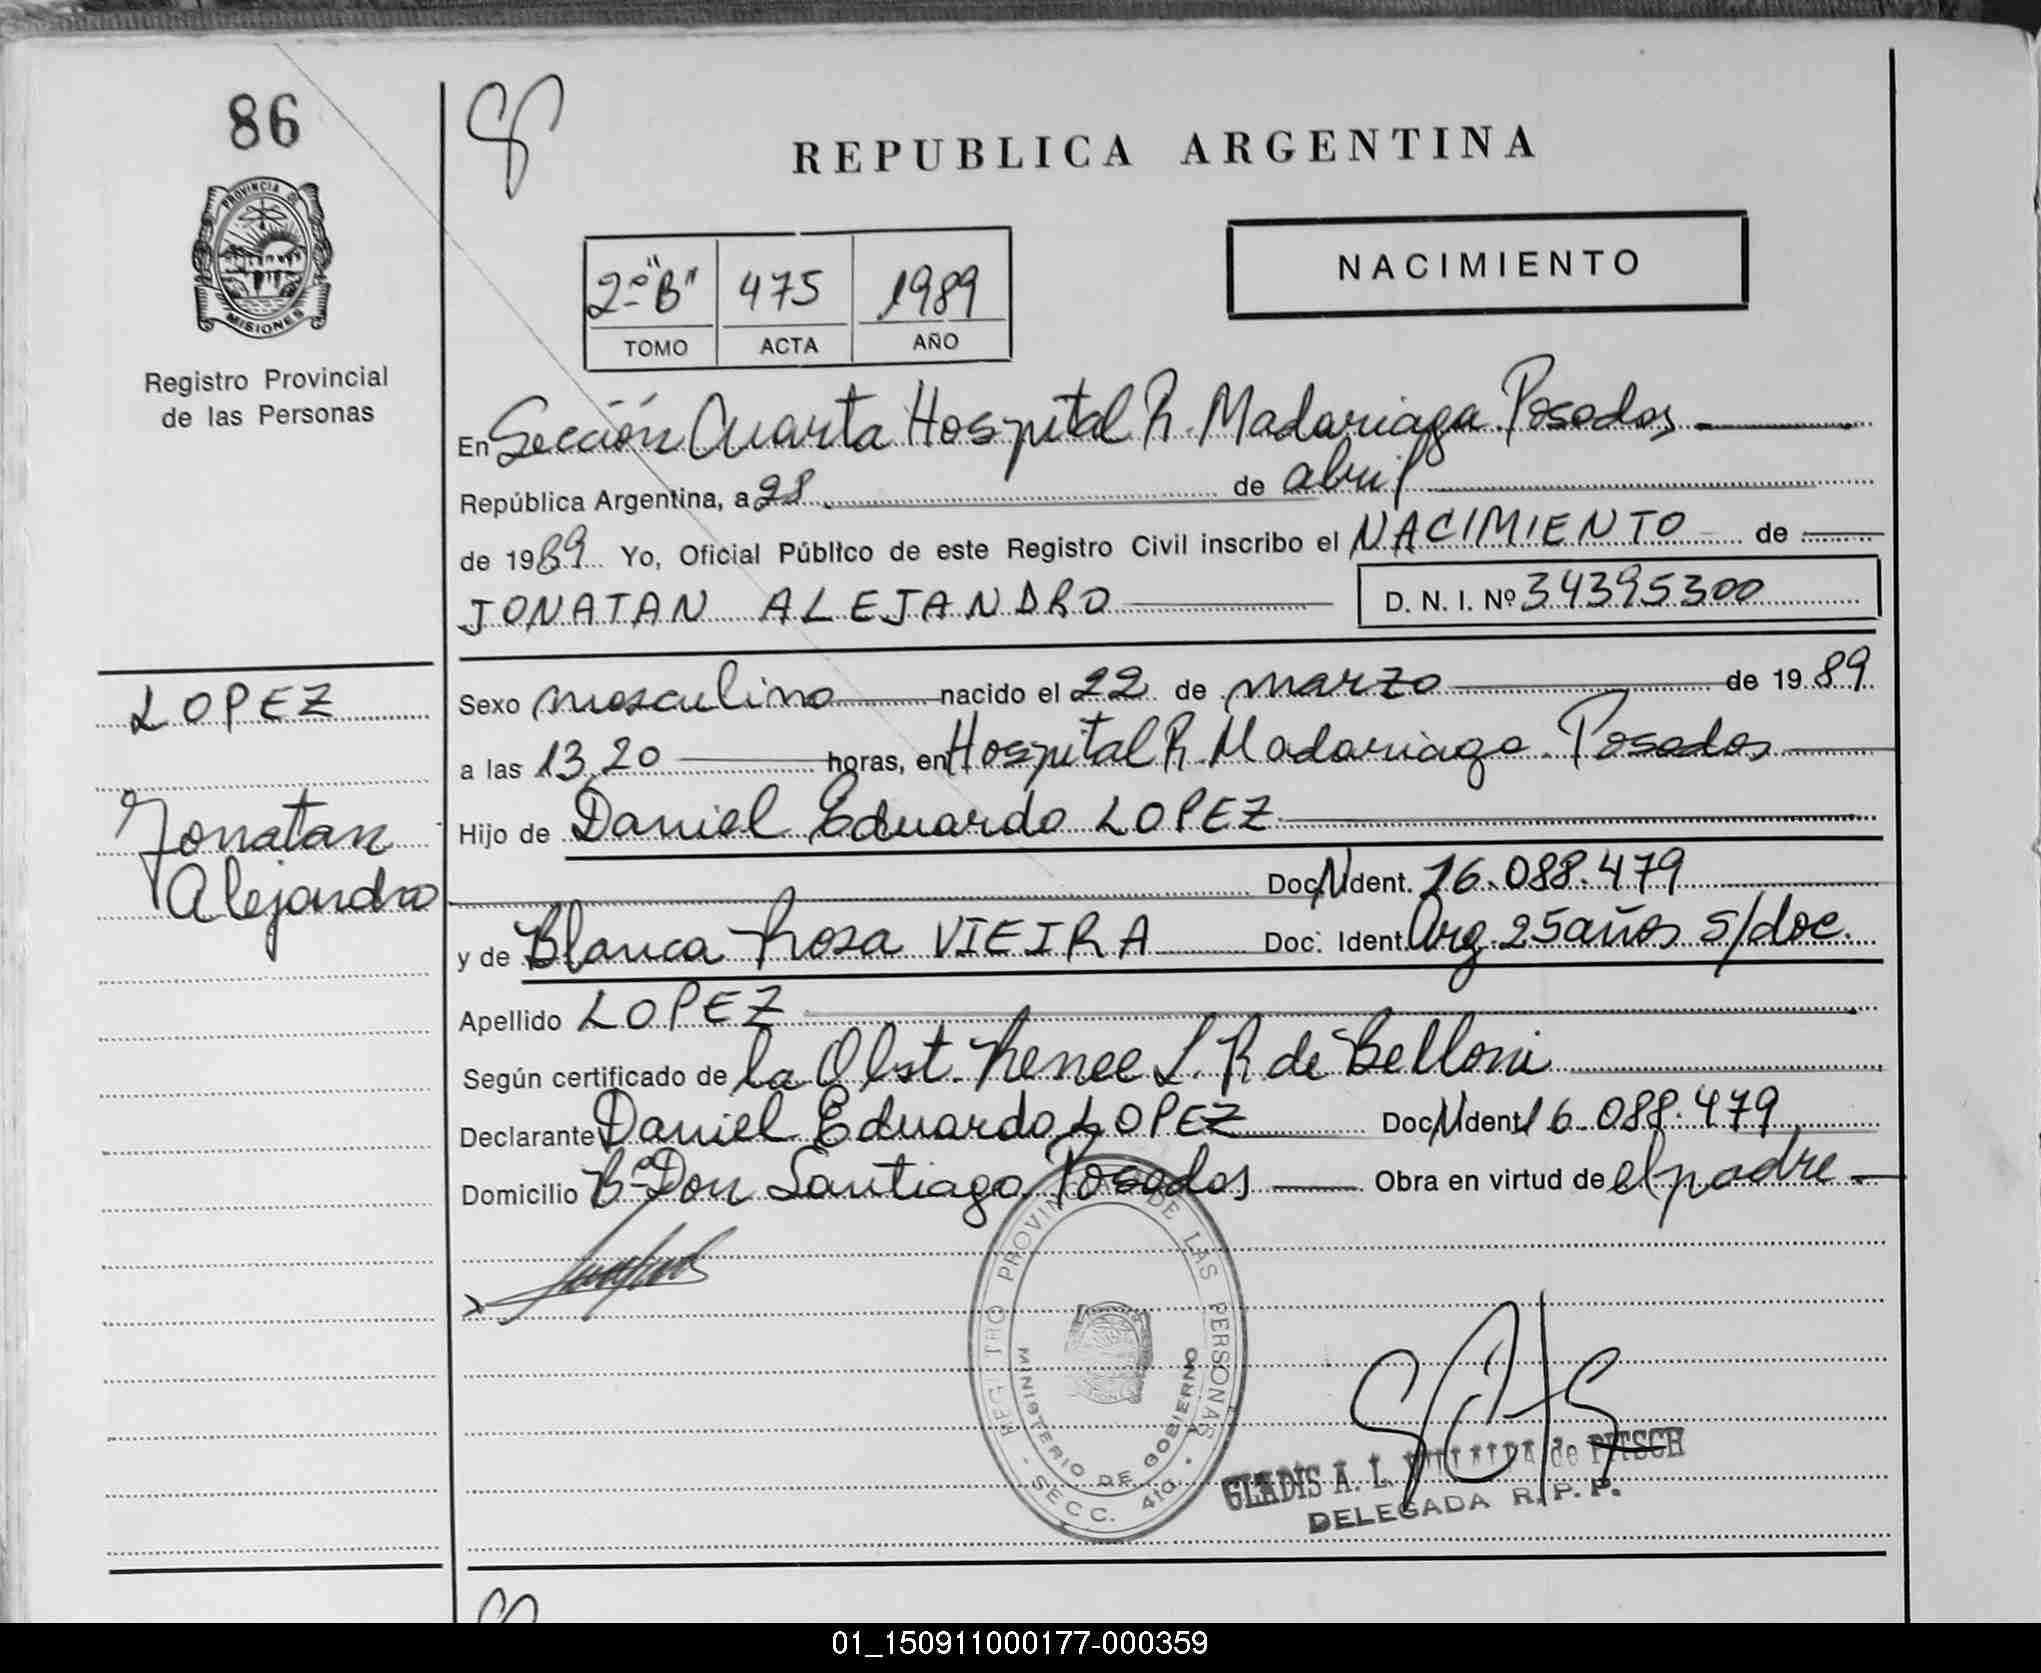 86
REPUBLICA ARGENTINA
PROVINCIA DE
MISIONES
Registro Provincial
de las Personas
2º "B" 475 1989
TOMO ACTA AÑO
NACIMIENTO
En Sección Cuarta Hospital R. Madariaga. Posadas
República Argentina, a 28 de abril
de 1989 Yo, Oficial Público de este Registro Civil inscribo el NACIMIENTO de
JONATAN ALEJANDRO D. N. I. Nº 34395300
LOPEZ
Jonatan
Alejandro
Sexo masculino nacido el 22 de marzo de 1989
a las 13,20 horas, en Hospital R. Madariaga. Posadas
Hijo de Daniel Eduardo LOPEZ
Doc. N Ident. 16.088.479
y de Blanca Rosa VIEIRA Doc. Ident. Arg. 25 años s/doc.
Apellido LOPEZ
Según certificado de la Obst. Renee L. R. de Belloni
Declarante Daniel Eduardo LOPEZ Doc. N Ident. 16.088.479
Domicilio Bº Don Santiago Posadas Obra en virtud de el padre
REGISTRO PROVINCIAL DE LAS PERSONAS
MINISTERIO DE GOBIERNO
SECC. 4TO.
GLADIS A. L. de PITSCH
DELEGADA R. P. P.
01_150911000177-000359